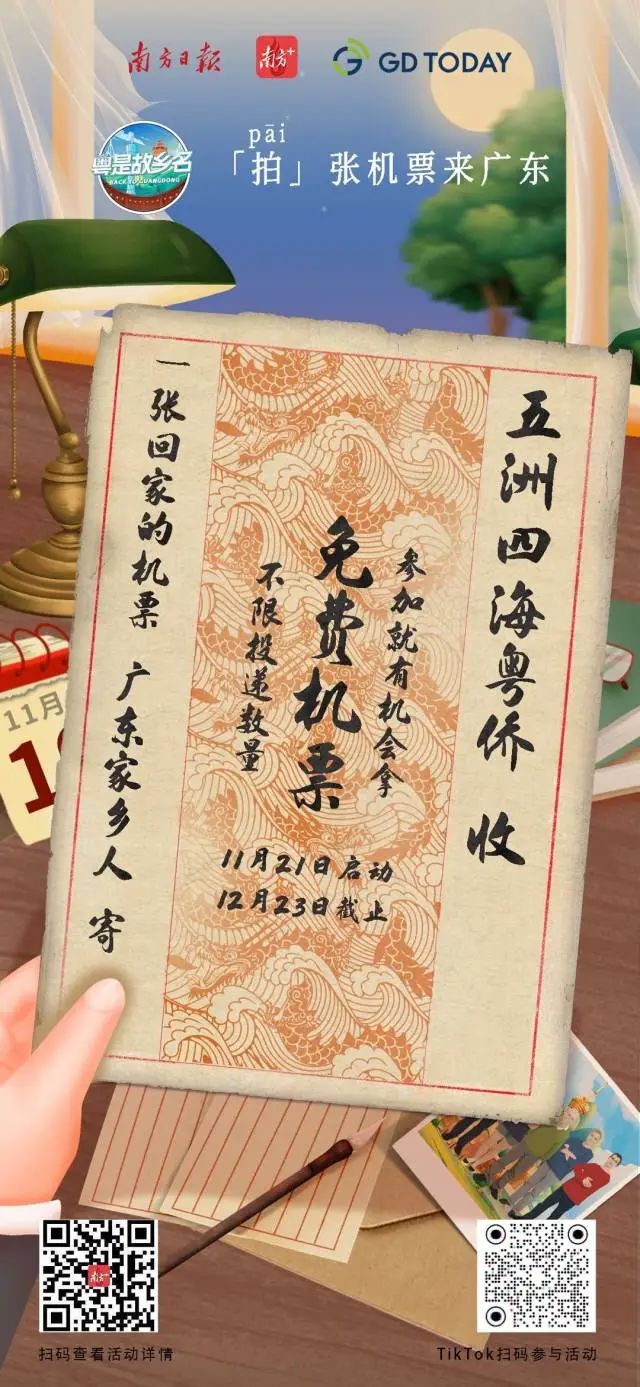 南方日報
南方+
GD TODAY
粤是故乡名
BACK TO GUANGDONG
pāi
「拍」张机票来广东
五洲四海粤侨 收
参加就有机会拿
免费机票
不限投递数量
11月21日启动
12月23日截止
一张回家的机票 广东家乡人 寄
11月
南方+
扫码查看活动详情
TikTok扫码参与活动